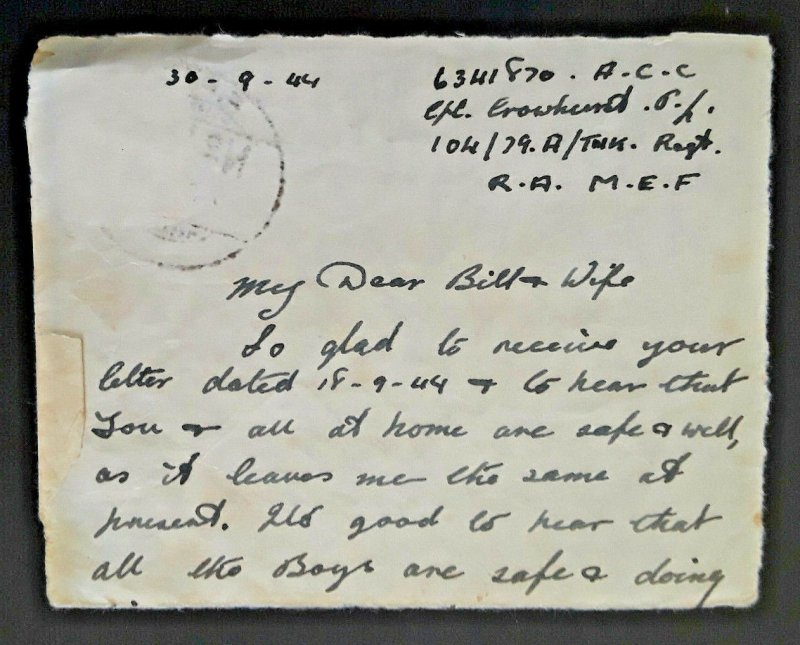 30 - 9 - 44
6341870 . A.C.C
Cpl. Crowhurst .
104/79.A/TNK. Regt.
R.A. M.E.F
My Dear Bill & Wife
So glad to receive your
letter dated 18-9-44 & to hear that
You & all at home are safe & well,
as it leaves me the same at
present. Its good to hear that
all the Boys are safe & doing